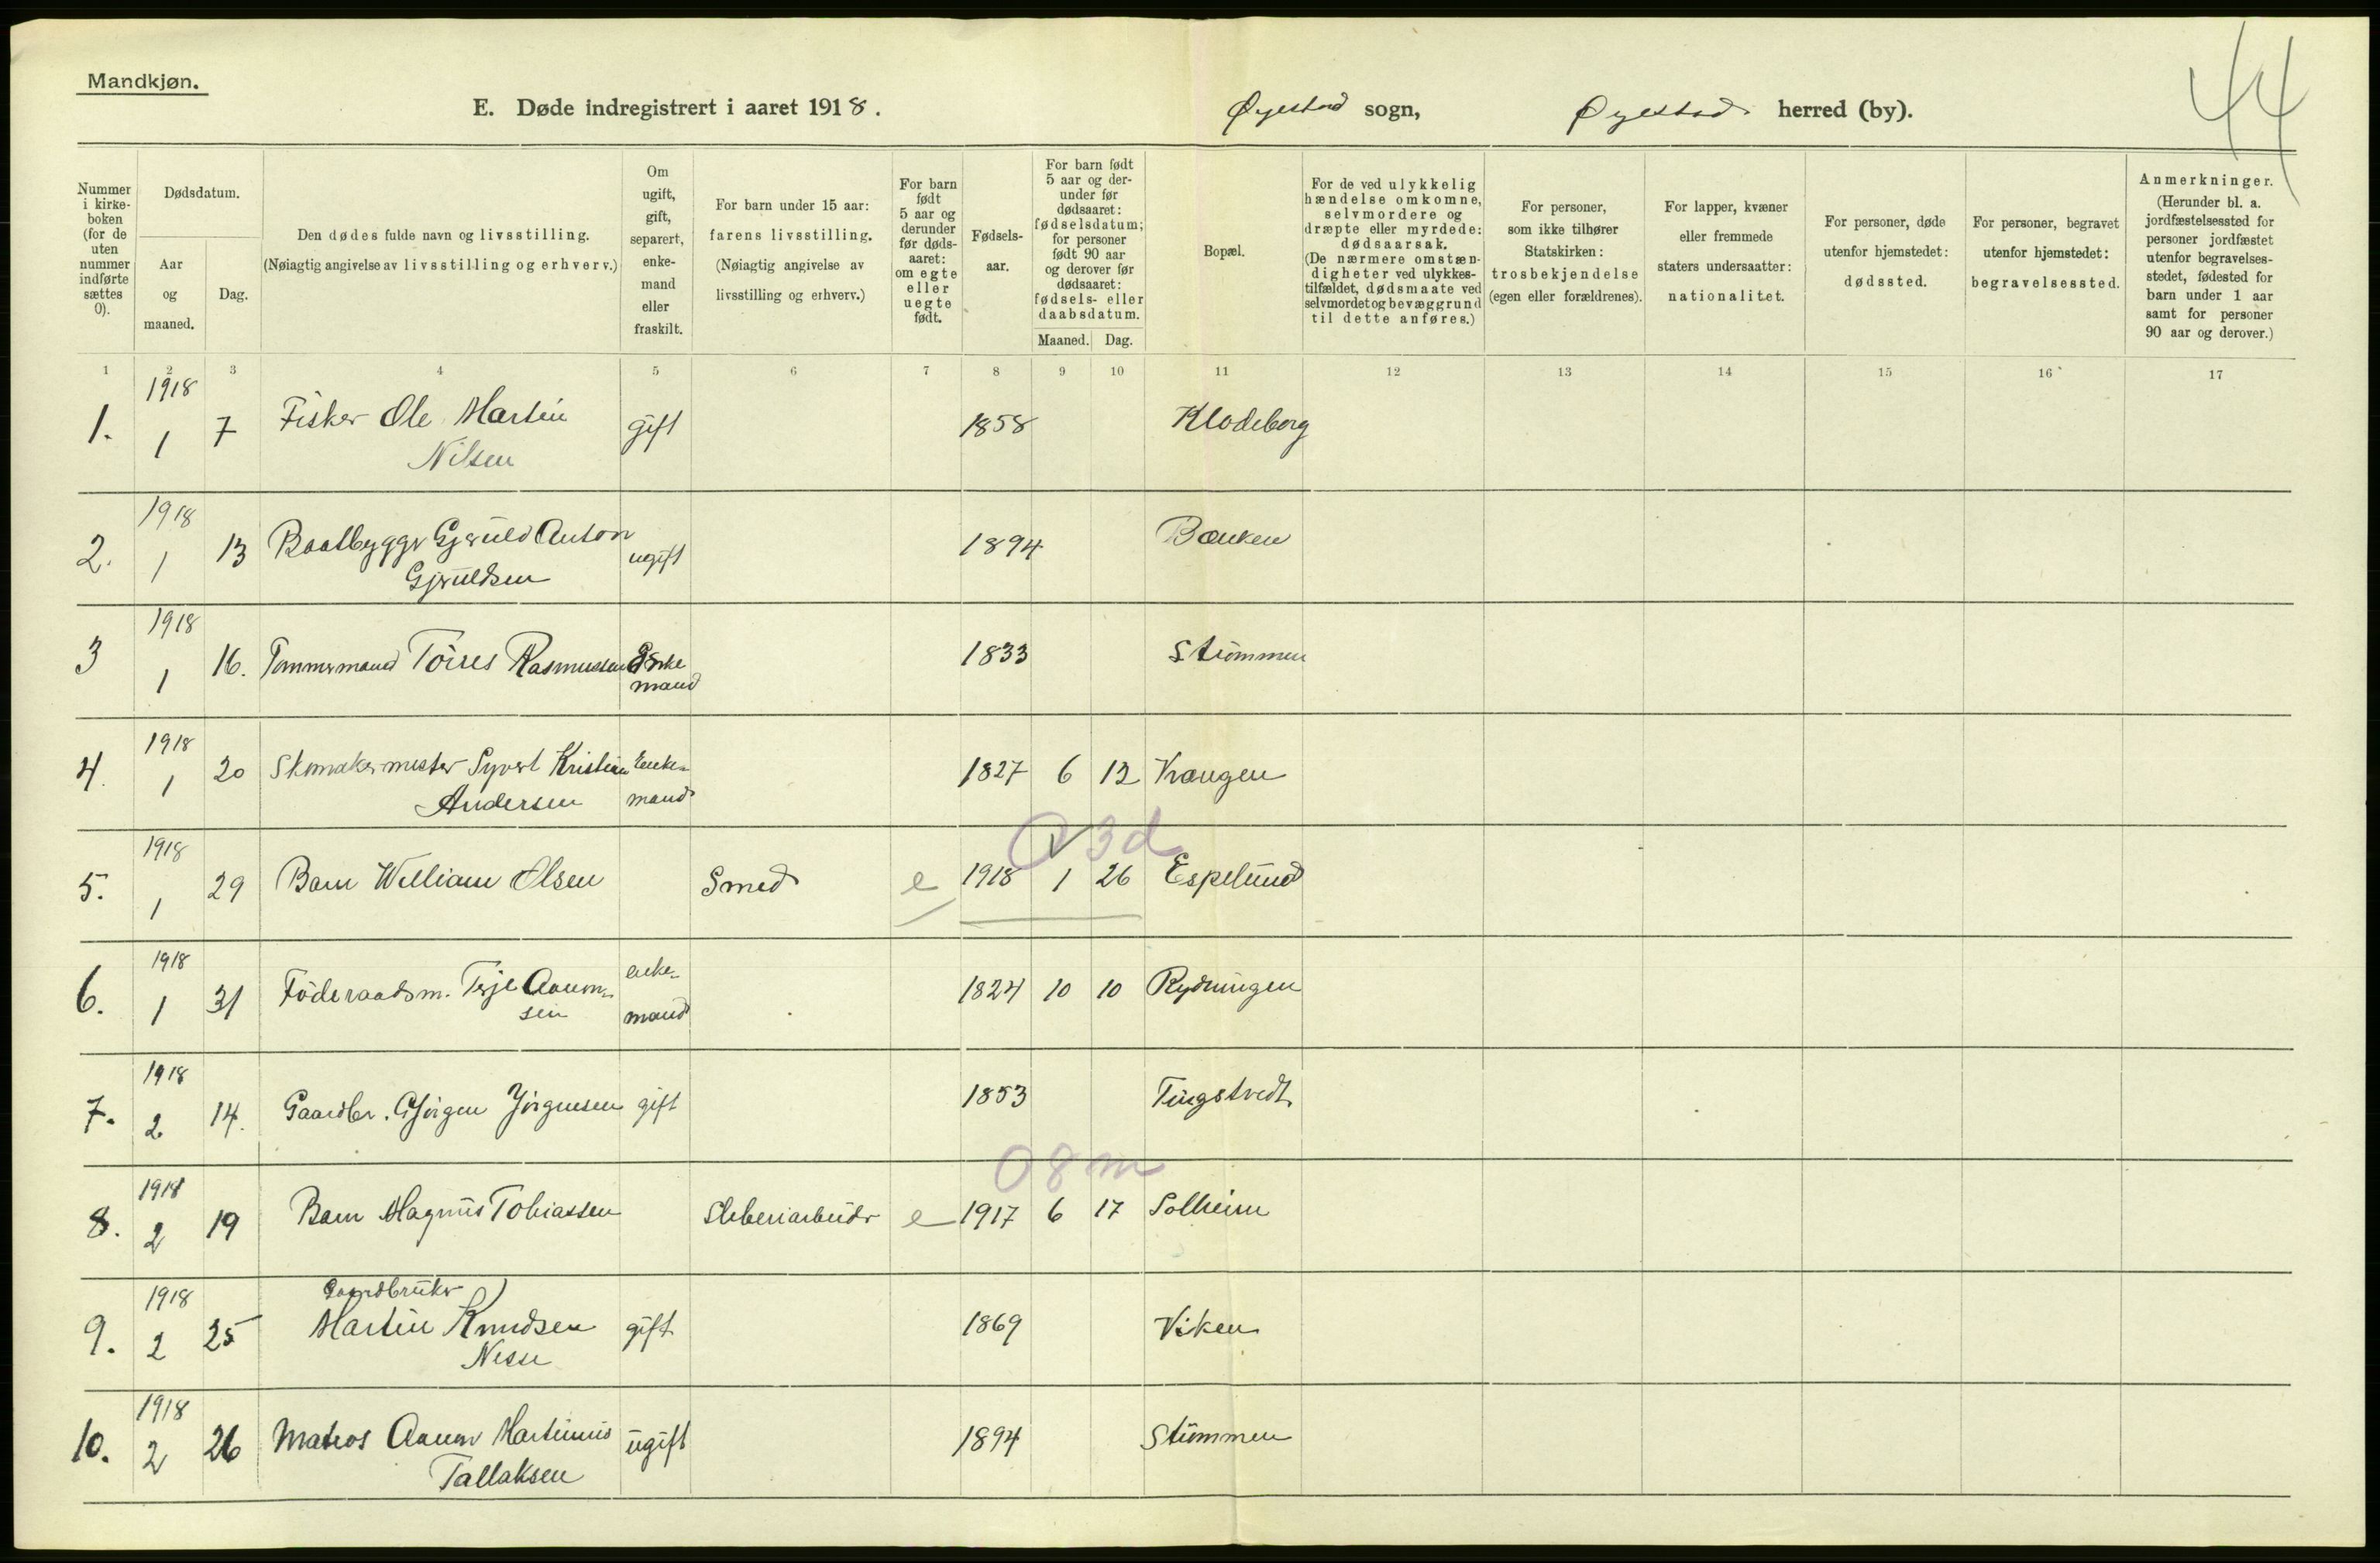 Mandkjøn.
44
E. Døde indregistrert i aaret 1918.
Øyestad sogn, Øyestad herred (by).
Nummer i kirke-boken (for de uten nummer indførte sættes 0).
Dødsdatum.
Aar og maaned.
Dag.
Den dødes fulde navn og livsstilling.
(Nøiagtig angivelse av livsstilling og erhverv.)
Om ugift, gift, separert, enke-mand eller fraskilt.
For barn under 15 aar: farens livsstilling.
(Nøiagtig angivelse av livsstilling og erhverv.)
For barn født 5 aar og derunder før døds-aaret: om egte eller uegte født.
Fødsels-aar.
For barn født 5 aar og der-under før dødsaaret: fødselsdatum; for personer født 90 aar og derover før dødsaaret: fødsels- eller daabsdatum.
Maaned. Dag.
Bopæl.
For de ved ulykkelig hændelse omkomne, selvmordere og dræpte eller myrdede: dødsaarsak.
(De nærmere omstæn-digheter ved ulykkes-tilfældet, dødsmaate ved selvmordet og bevæggrund til dette anføres.)
For personer, som ikke tilhører Statskirken: trosbekjendelse (egen eller forældrenes).
For lapper, kvæner eller fremmede staters undersaatter: nationalitet.
For personer, døde utenfor hjemstedet: dødssted.
For personer, begravet utenfor hjemstedet: begravelsessted.
Anmerkninger.
(Herunder bl. a. jordfæstelsessted for personer jordfæstet utenfor begravelses-stedet, fødested for barn under 1 aar samt for personer 90 aar og derover.)
1 2 3 4 5 6 7 8 9 10 11 12 13 14 15 16 17
1. 1918 1 7 Fisker Ole Martin Nilsen gift 1858 Klodeborg
2. 1918 1 13 Baatbygger Gjeruld Anton Gjeruldsen ugift 1894 Bænken
3 1918 1 16. Tømmermand Tørres Rasmussen Enke mand 1833 Strømmen
4. 1918 1 20 Skomakermester Syvert Kristian Andersen Enke-mand 1827 6 12 Vrængen
0 3d
5. 1918 1 29 Barn William Olsen Smed e 1918 1 26 Espelund
6. 1918 1 31 Föderaadsm. Terje Aanon-sen enke-mand 1824 10 10 Rydningen
7. 1918 2 14. Gaardbr. Gjörgen Jörgensen gift 1853 Tingstvedt
0 8m
8. 1918 2 19 Barn Magnus Tobiassen Sliberiarbeider e 1917 6 17 Solheim
9. 1918 2 25 Gaardbruker Martin Knudsen Nesse gift 1869 Viken
10. 1918 2 26 Matros Aanon Martinius Tallaksen ugift 1894 Strømmen